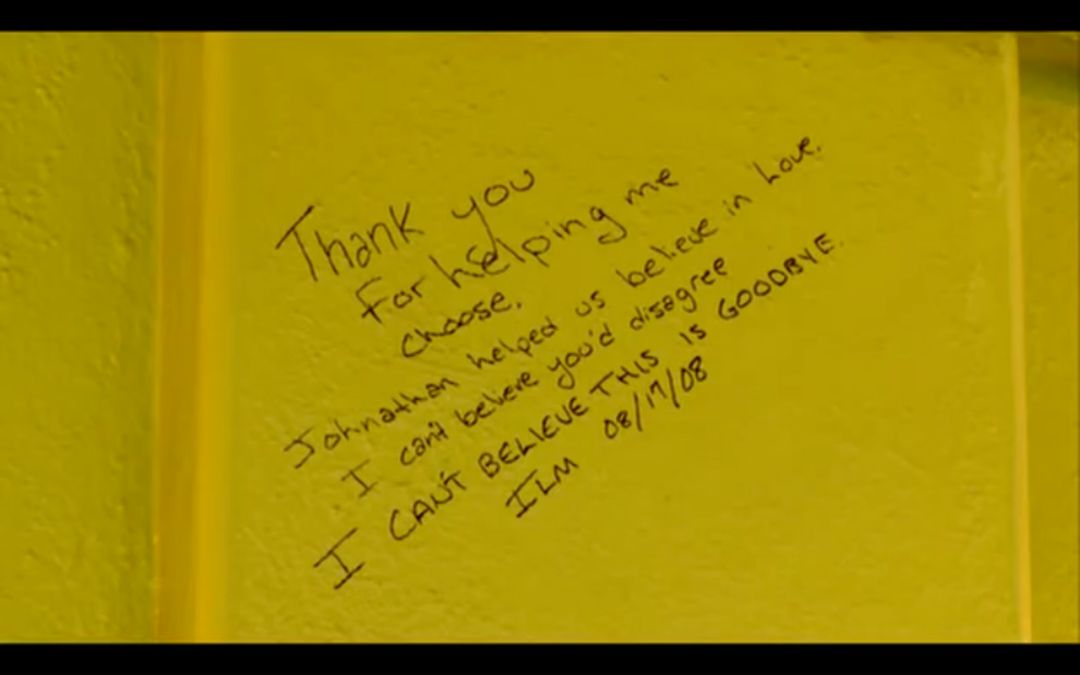 Thank you
for helping me
choose.
Johnathan helped us believe in Love.
I can't believe you'd disagree
I CAN'T BELIEVE THIS IS GOODBYE.
ILM 08/17/08